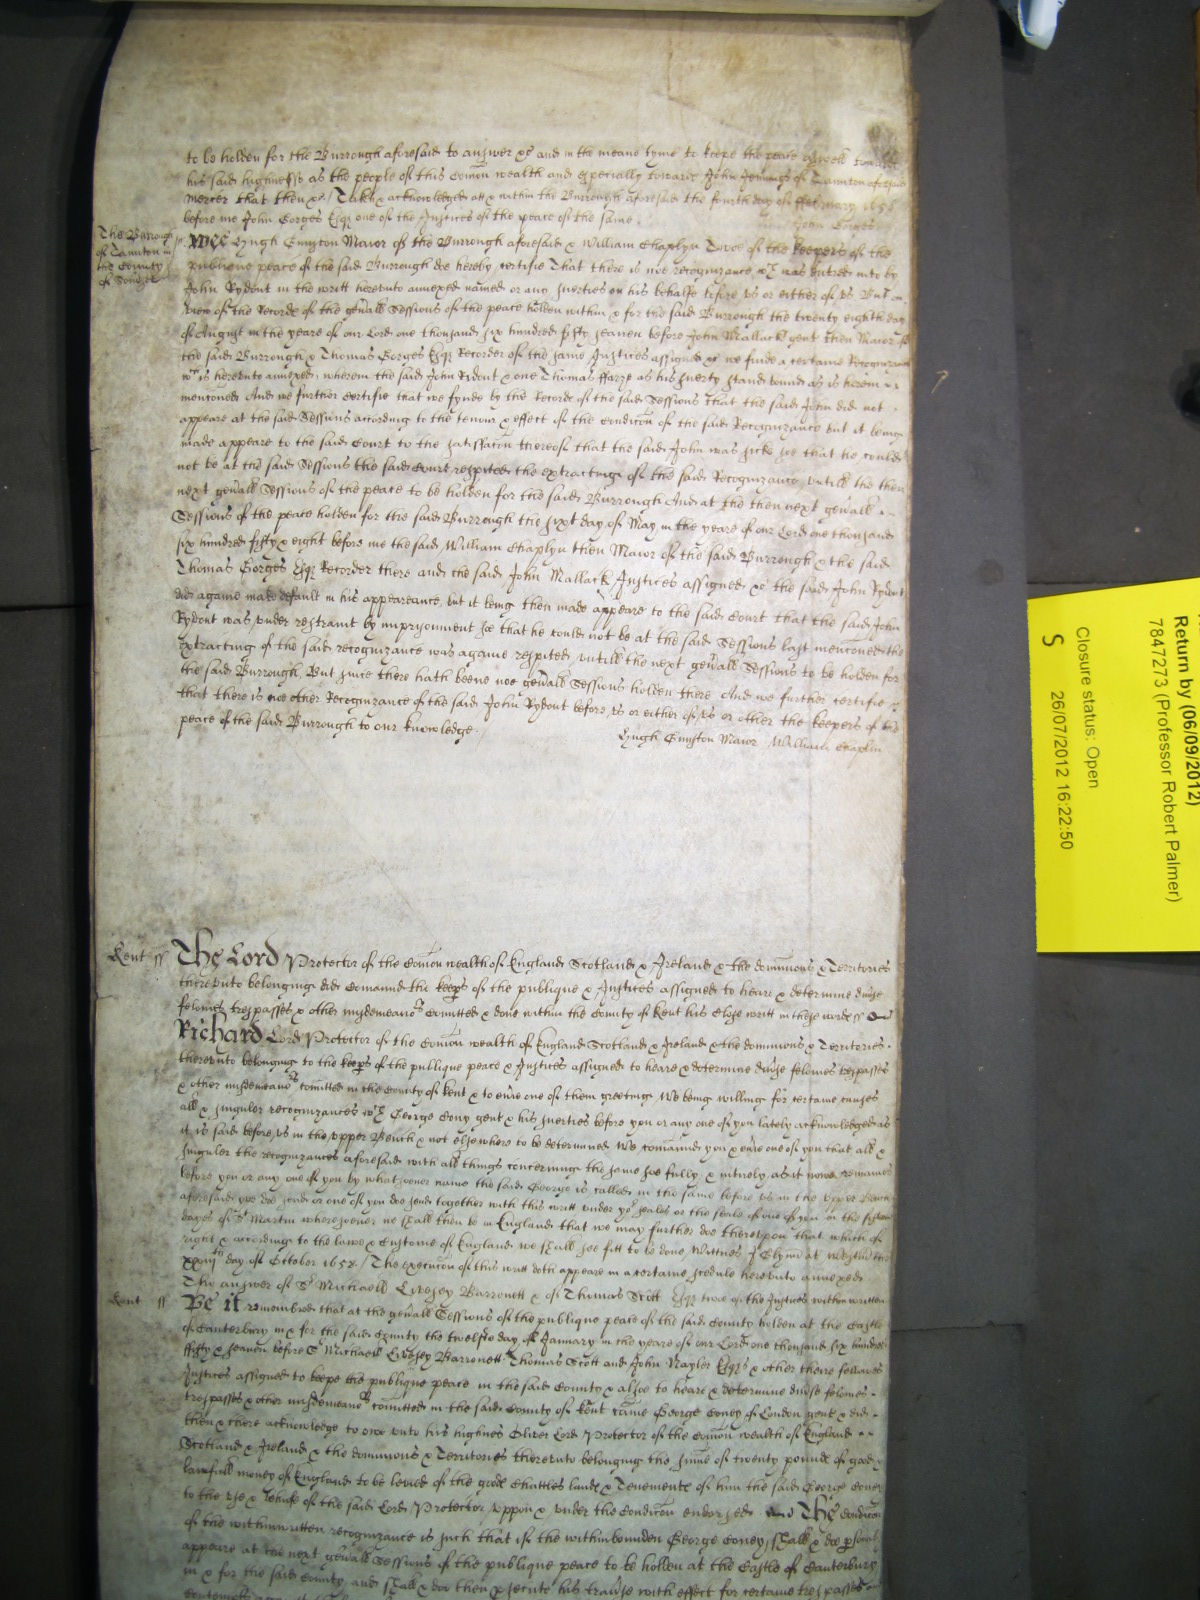 to be holden for the Burrough aforesaid to answer &c and in the meane tyme to keepe the peace aswell towards
his said highnesse as the people of this Comon wealth and especially towards John Jennings of Taunton aforesaid
mercer that then &c Taken & acknowledged att & within the Burrough aforesaid the fourth day of ffebruary 1656
before me John Gorges Esqr one of the Justices of the peace of the same. John Gorges
The Burrough
of Taunton in
the County
of Somset
Wee Lyngh Cunyton Maior of the Burrough aforesaid & William Chaplyn Twoe of the keepers of the
publique peace of the said Burrough doe hereby certifie That there is noe recognizance wch was entred into by
John Rydout in the writt hereunto annexed named or any suerties on his behalfe before us or either of us But on
view of the Records of the genrall Sessions of the peace holden within & for the said Burrough the twenty eighth day
of August in the yeare of our Lord one thousand six hundred fifty seaven before John Mallack gent then Maior of
the said Burrough & Thomas Gorges Esqr Recorder of the same Justices assigned &c we finde a certaine Recognizance
wch is hereunto annexed, wherein the said John Ridout & one Thomas ffarze as his suerty stand bound as is herein
menconed And we further certifie that we fynde by the Records of the said Sessions that the said John did not
appeare at the said Sessions according to the tenour & effect of the condicon of the said Recognizance but it being
made appeare to the said Court to the satisfaccon thereof that the said John was sicke soe that he could
not be at the said Sessions the said Court respited the extracting of the said Recognizance untill the then
next genrall Sessions of the peace to be holden for the said Burrough And at the then next genrall
Sessions of the peace holden for the said Burrough the sixt day of May in the yeare of our Lord one thousand
six hundred fifty & eight before me the said William Chaplyn then Maior of the said Burrough & the said
Thomas Gorges Esqr Recorder there and the said John Mallack Justices assigned &c the said John Rydout
did againe make default in his appeareance, but it being then made appeare to the said Court that the said John
Rydout was under restraint by imprisonment soe that he could not be at the said Sessions last menconed the
extracting of the said recognizance was againe respited untill the next genrall Sessions to be holden for
the said Burrough. But since there hath beene noe genrall Sessions holden there And we further certifie
that there is noe other Recognizance of the said John Rydout before us or either of us or other the keepers of the
peace of the said Burrough to our knowledge.
Lyngh Cunyton Maior William Chaplin
Kent ss
The Lord Protector of the Comon wealth of England Scotland & Ireland & the dominions & Territories
thereunto belonging did Comaund the keeps of the publique & Justices assigned to heare & determine divse
felonies trespasses & other misdemeanors Comitted & done within the County of Kent his Close writt in these words ss
Richard Lord Protector of the Comon wealth of England Scotland & Ireland & the dominions & Territories
thereunto belonging to the keeps of the publique peace & Justices assigned to heare & determine divse felonies trespasses
& other misdemeanors comitted in the County of Kent & to evie one of them greeting We being willing for certaine causes
all & singuler recognizances wch George Cony gent & his suerties before you or any one of you lately acknowledged as
it is said before us in the upper Bench & not elsewhere to be determined We comaund you & evie one of you that all &
singuler the recognizances aforesaid with all things concerning the same soe fully & intirely as it nowe remaines
before you or any one of you by what soever name the said George is called in the same before us in the Upper Bench
aforesaid you doe send or one of you doe send together with this writt under yor seales or the seale of one of you in the fifteen
dayes of St Martin wheresoever we shall then be in England that we may further doe thereupon that which of
right & according to the lawe & Custome of England we shall see fitt to be done, Wittnes J Glynn at Westmr the
xxiiijth day of October 1658 / The execucon of this writt doth appeare in a certaine scedule hereunto annexed
The answer of Sr Michaell Livesey Barronett & of Thomas Scott Esqr twoe of the Justices within written
Kent ss
Be it remembred that at the genrall Sessions of the publique peace of the said County holden at the Castle
of Canterbury in & for the said County the twelfte day of January in the yeare of our Lord one thousand six hundred
fifty & seaven before Sr Michaell Livesey Barronett Thomas Scott and John Nayler Esqrs & other theire fellowes
Justices assigned to keepe the publique peace in the said County & alsoe to heare & determine divse felonies
trespasses & other misdemeanors comitted in the said County of Kent came George Coney of London gent & did
then & there acknowledge to owe unto his highnes Oliver Lord Protector of the Comon wealth of England
Scotland & Ireland & the dominions & Territories thereunto belonging the sume of twenty pounds of good &
lawfull money of England to be levied of the goods Chattles lands & Tenements of him the said George Coney
to the use & behufe of the said Lord Protector, uppon & under the Condicon endorsed And The Condicon
of the withinwritten recognizance is such that if the withinbounden George Coney shall & doe psonally
appeare at the next genrall Sessions of the publique peace to be hollen at the Castle of Canterbury
in & for the said County, and shall & doe then psecute his travse with effect for certaine trespasses
Closure status: Open
S 26/07/2012 16:22:50
Return by (06/09/2012)
7847273 (Professor Robert Palmer)